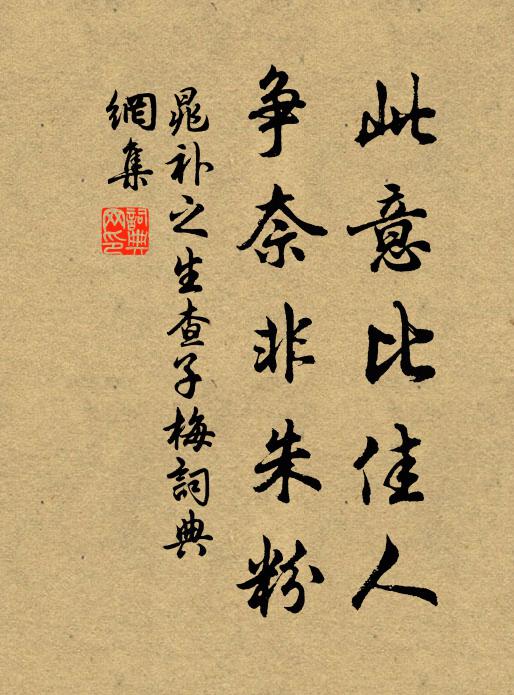 此意比佳人
争奈非朱粉
晁补之生查子梅詞典
網集
詞典
网印